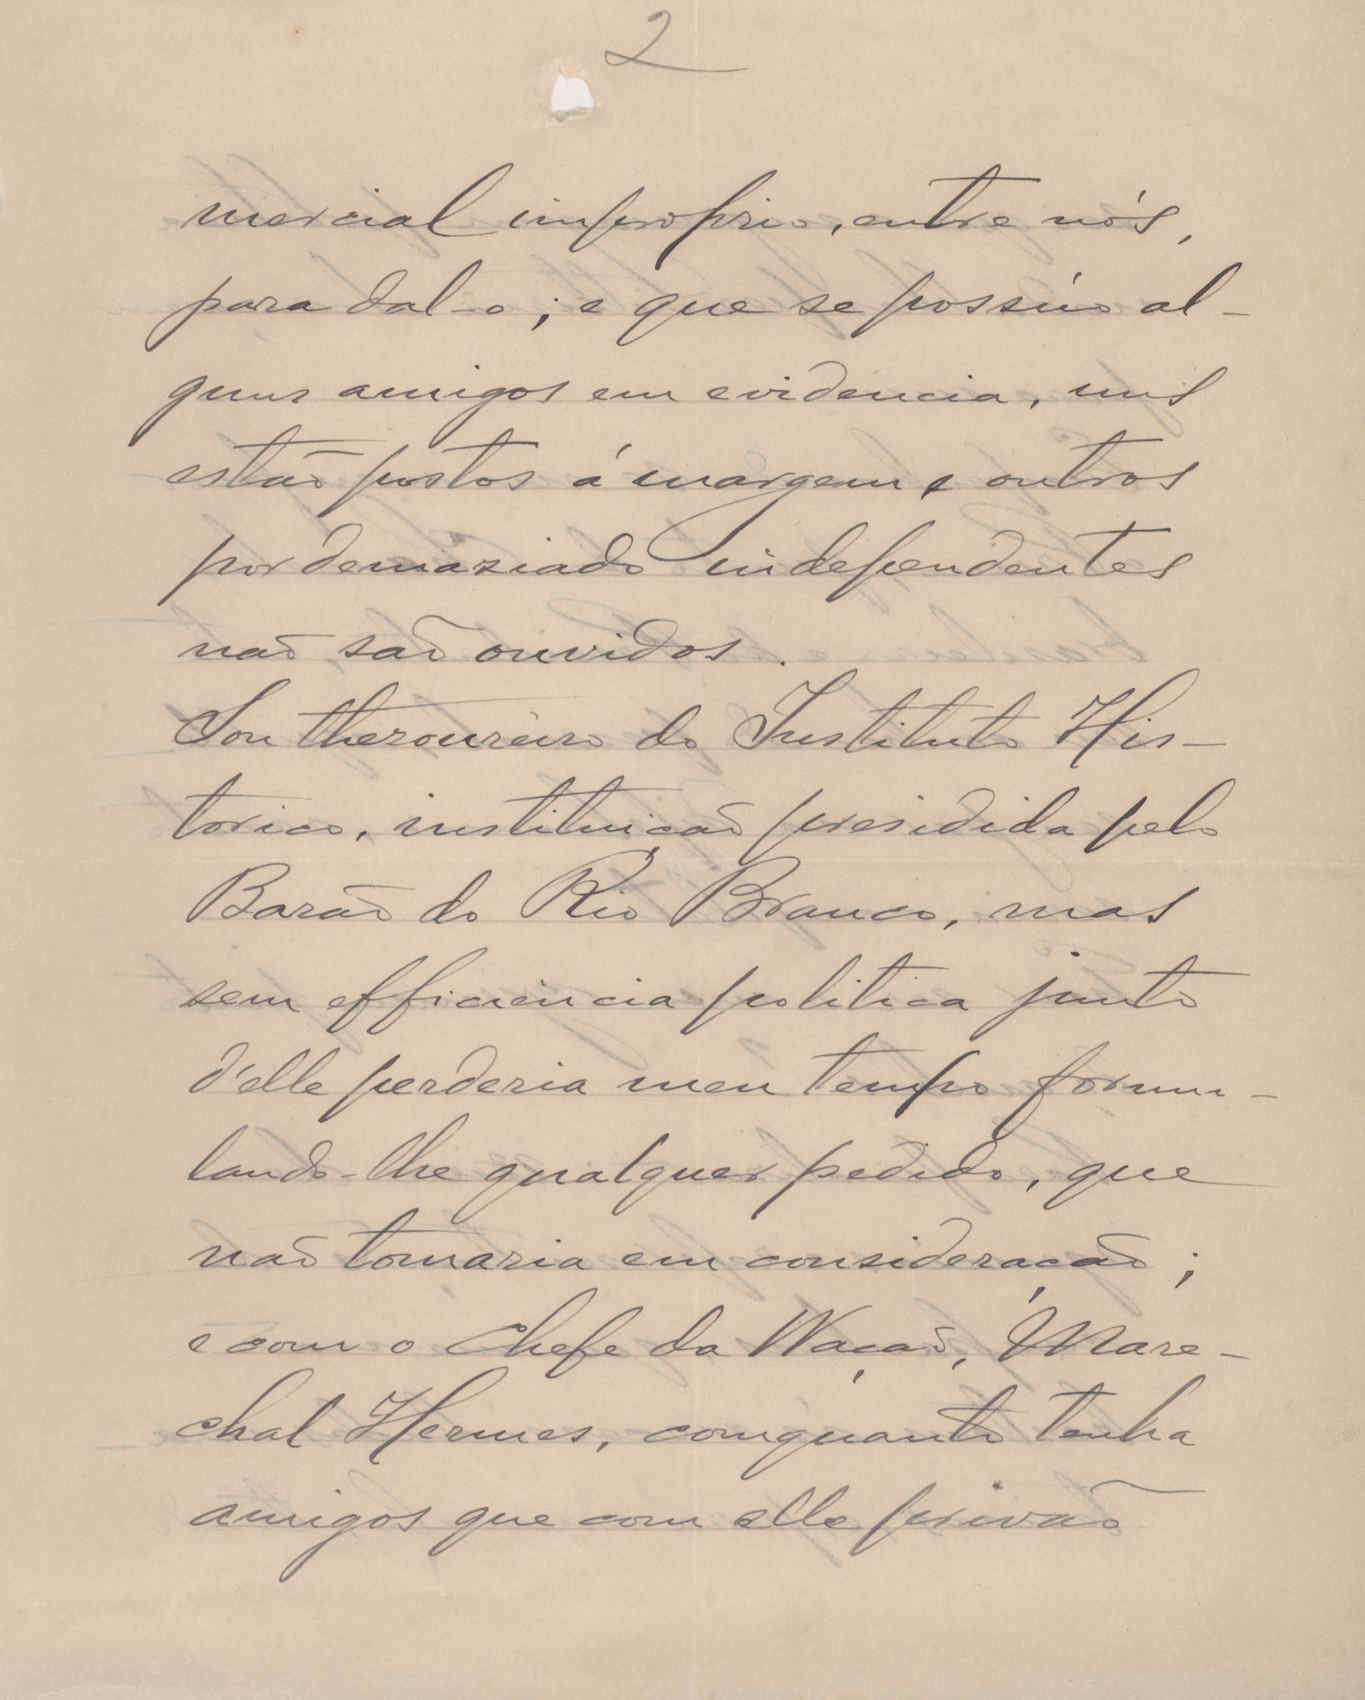 2
mercial improprio, entre nós,
para dal-o; e que se possúo al-
guns amigos em evidencia, uns
estão postos á margem e outros
por demaziado independentes
não são ouvidos.
Sou thezoureiro do Instituto His-
torico, instituição presidida pelo
Barão do Rio Branco, mas
sem efficiencia politica junto
d'elle perderia meu tempo formu-
lando-lhe qualquer pedido, que
não tomaria em consideração;
e com o Chefe da Nação, Mare-
chal Hermes, comquanto tenha
amigos que com elle privão